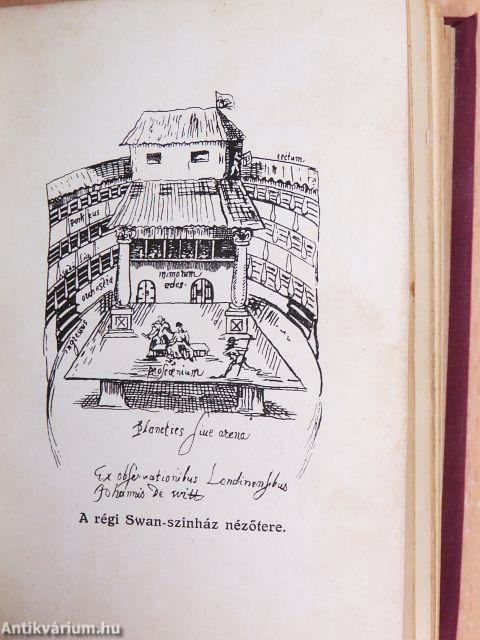 tectum
porticus
sedilia
orchestra
ingressus
mimorum
ædes.
proscænium
Planeties sive arena
Ex observationibus Londinensibus
Johannis De witt
A régi Swan-szinház nézőtere.
Antikvárium.hu